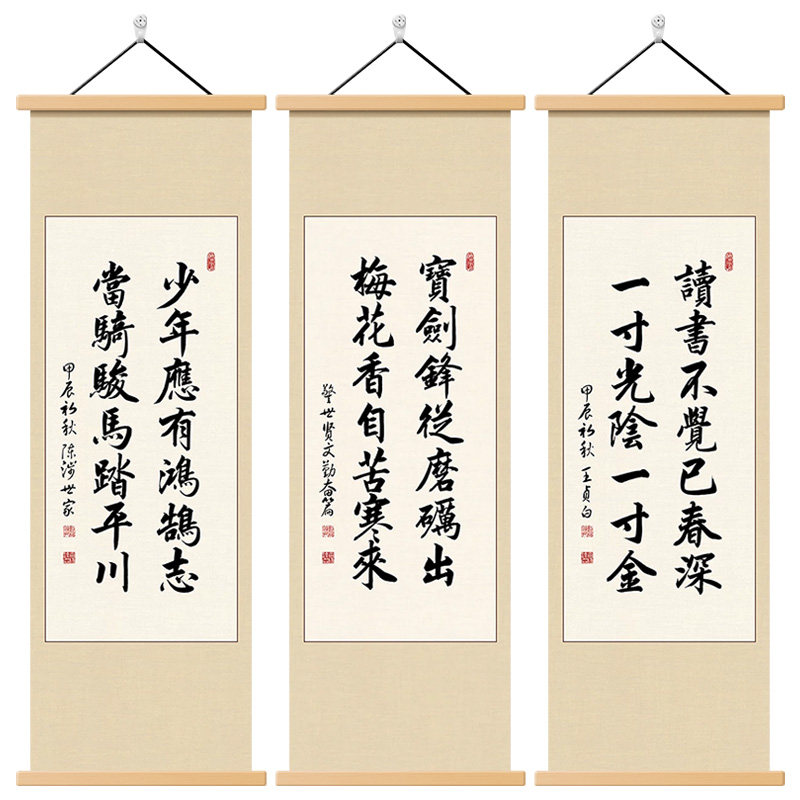 少年應有鴻鵠志
當騎駿馬踏平川
甲辰初秋 陈涉世家
寶劍鋒從磨礪出
梅花香自苦寒來
警世贤文勤奋篇
讀書不覺已春深
一寸光陰一寸金
甲辰初秋 王貞白